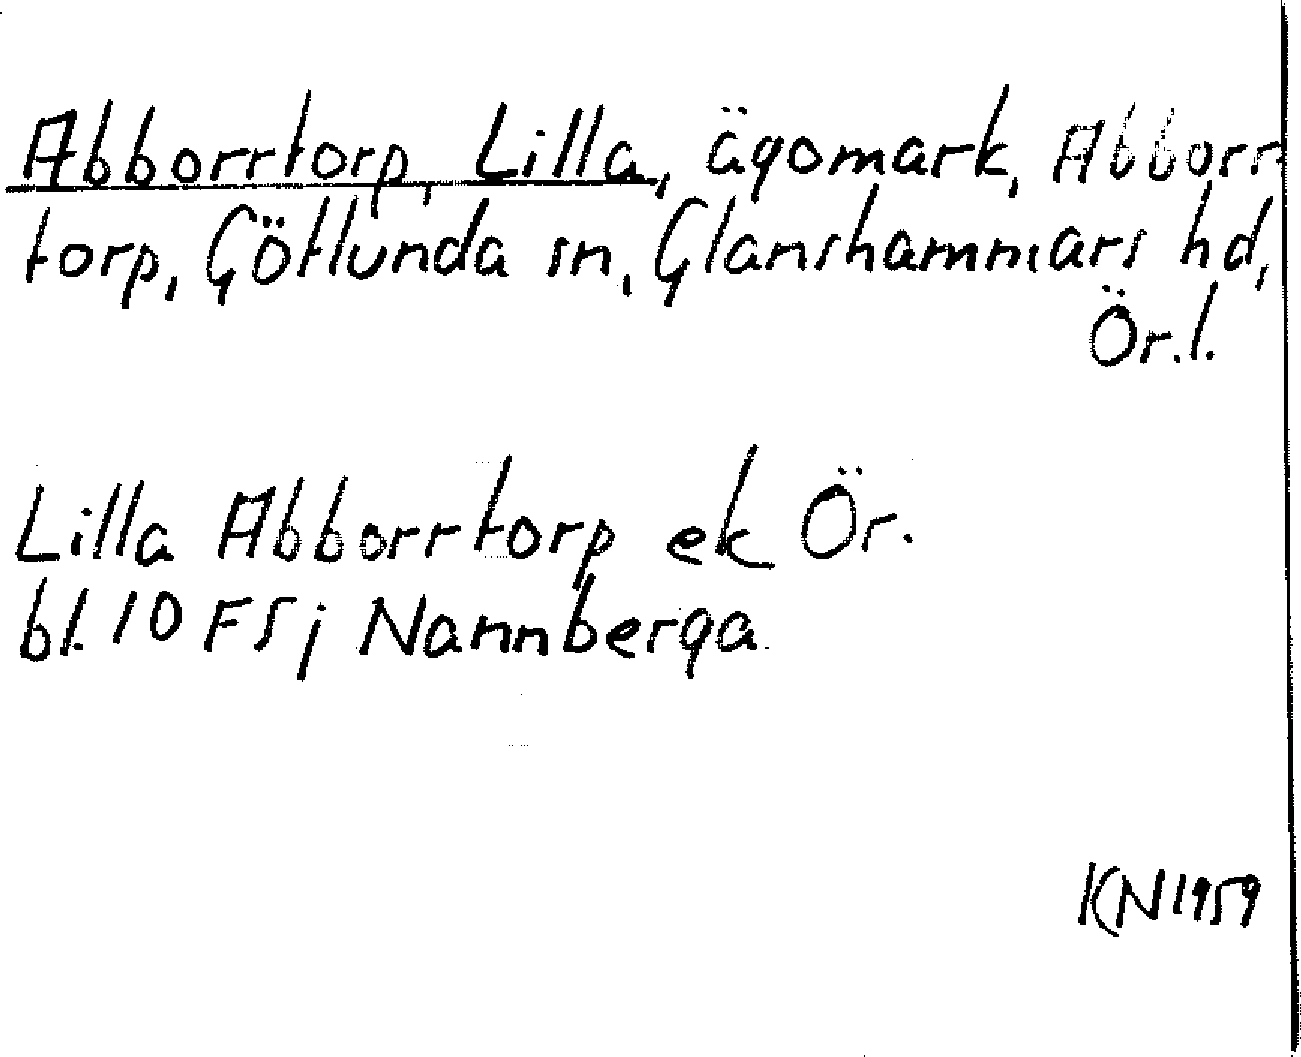 Abborrtorp, Lilla, ägomark, Abborr
torp, Götlunda sn, Glanshammars hd,
Ör.l.
Lilla Abborrtorp ek Ör.
bl. 10 FS; Nannberga
KN 1959